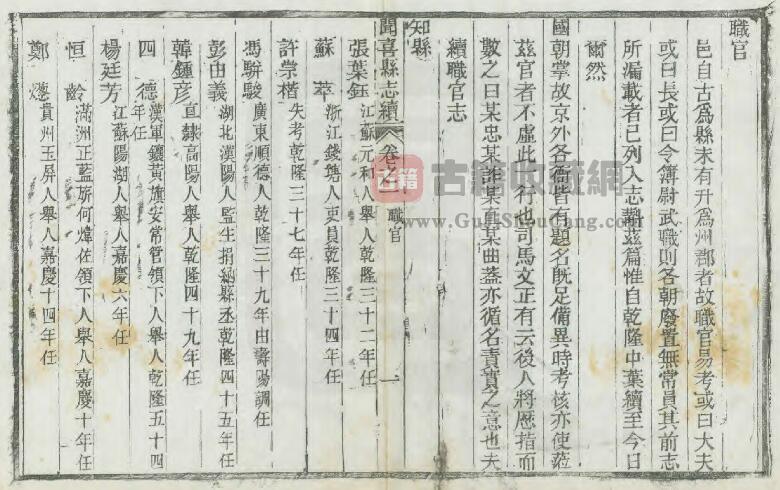 職官
邑自古爲縣未有升爲州郡者故職官易考或曰大夫
或曰長或曰令簿尉武職則各朝廢置無常員其前志
所漏載者已列入志 茲篇惟自乾隆中葉續至今日
爾然
國朝掌故京外各衙皆有題名旣足備異時考核亦使蒞
茲官者不虛此一行也司馬文正有云後人將歷指而
數之曰某忠某詐某直某曲蓋亦循名責實之意也夫
續職官志
知縣
聞喜縣志續 卷之一 職官 一
張葉鈺 江蘇元和人舉人乾隆三十二年任
蘇萃 浙江錢塘人吏員乾隆三十四年任
許崇楷 失考乾隆三十七年任
馮駢駿 廣東順德人乾隆三十九年由壽陽調任
彭由義 湖北漢陽人監生捐納縣丞乾隆四十五年任
韓鍾彥 直隸高陽人舉人乾隆四十九年任
四德 漢軍鑲黃旗安常管領下人舉人乾隆五十四年任
楊廷芳 江蘇陽湖人舉人嘉慶六年任
恒齡 滿洲正藍旂何煒佐領下人舉人嘉慶十年任
鄭 貴州玉屏人舉人嘉慶十四年任
古籍 古籍收藏網
www.GuJiShouCang.com